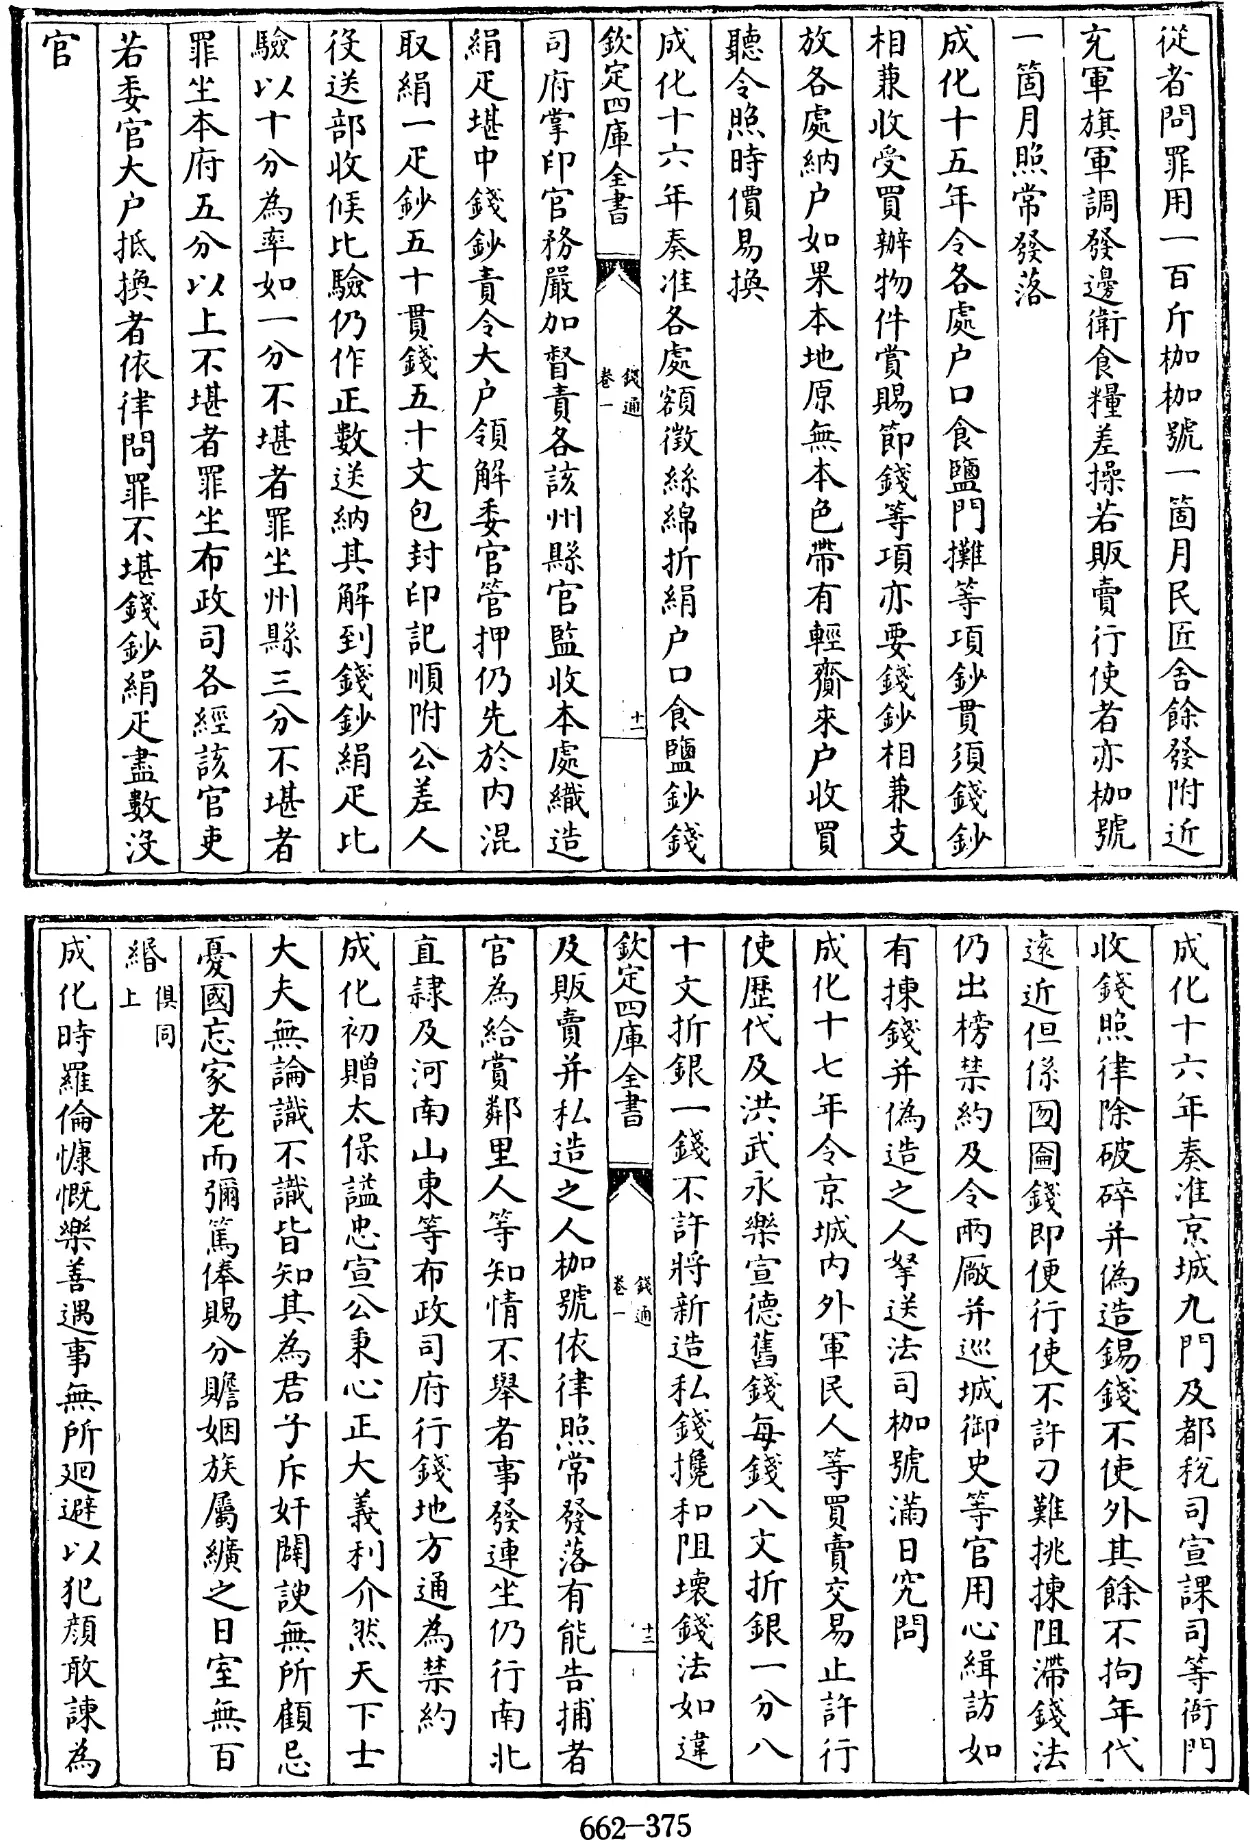 從者問罪用一百斤枷枷號一箇月民匠舍餘發附近
充軍旗軍調發邊衛食糧差操若販賣行使者亦枷號
一箇月照常發落
成化十五年令各處户口食鹽門攤等項鈔貫須錢鈔
相兼收受買辦物件賞賜節錢等項亦要錢鈔相兼支
放各處納户如果本地原無本色帶有輕齎來户收買
聽令照時價易換
成化十六年奏准各處額徵絲綿折絹户口食鹽鈔錢
欽定四庫全書
錢通
卷一
十一
司府掌印官務嚴加督責各該州縣官監收本處織造
絹疋堪中錢鈔責令大户領解委官管押仍先於内混
取絹一疋鈔五十貫錢五十文包封印記順附公差人
役送部收候比驗仍作正數送納其解到錢鈔絹疋比
驗以十分為率如一分不堪者罪坐州縣三分不堪者
罪坐本府五分以上不堪者罪坐布政司各經該官吏
若委官大户抵換者依律問罪不堪錢鈔絹疋盡數没
官
成化十六年奏准京城九門及都税司宣課司等衙門
收錢照律除破碎并偽造錫錢不使外其餘不拘年代
遠近但係囫圇錢即便行使不許刁難挑揀阻滯錢法
仍出榜禁約及令兩廠并巡城御史等官用心緝訪如
有揀錢并偽造之人拏送法司枷號滿日究問
成化十七年令京城内外軍民人等買賣交易止許行
使歷代及洪武永樂宣德舊錢每錢八文折銀一分八
十文折銀一錢不許將新造私錢攙和阻壞錢法如違
欽定四庫全書
錢通
卷一
十二
及販賣并私造之人枷號依律照常發落有能告捕者
官為給賞鄰里人等知情不舉者事發連坐仍行南北
直隸及河南山東等布政司府行錢地方通為禁約
成化初贈太保諡忠宣公秉心正大義利介然天下士
大夫無論識不識皆知其為君子斥奸闢諛無所顧忌
憂國忘家老而彌篤俸賜分贍姻族屬纊之日室無百
緡俱同上
成化時羅倫慷慨樂善遇事無所廻避以犯顔敢諫為
662-375